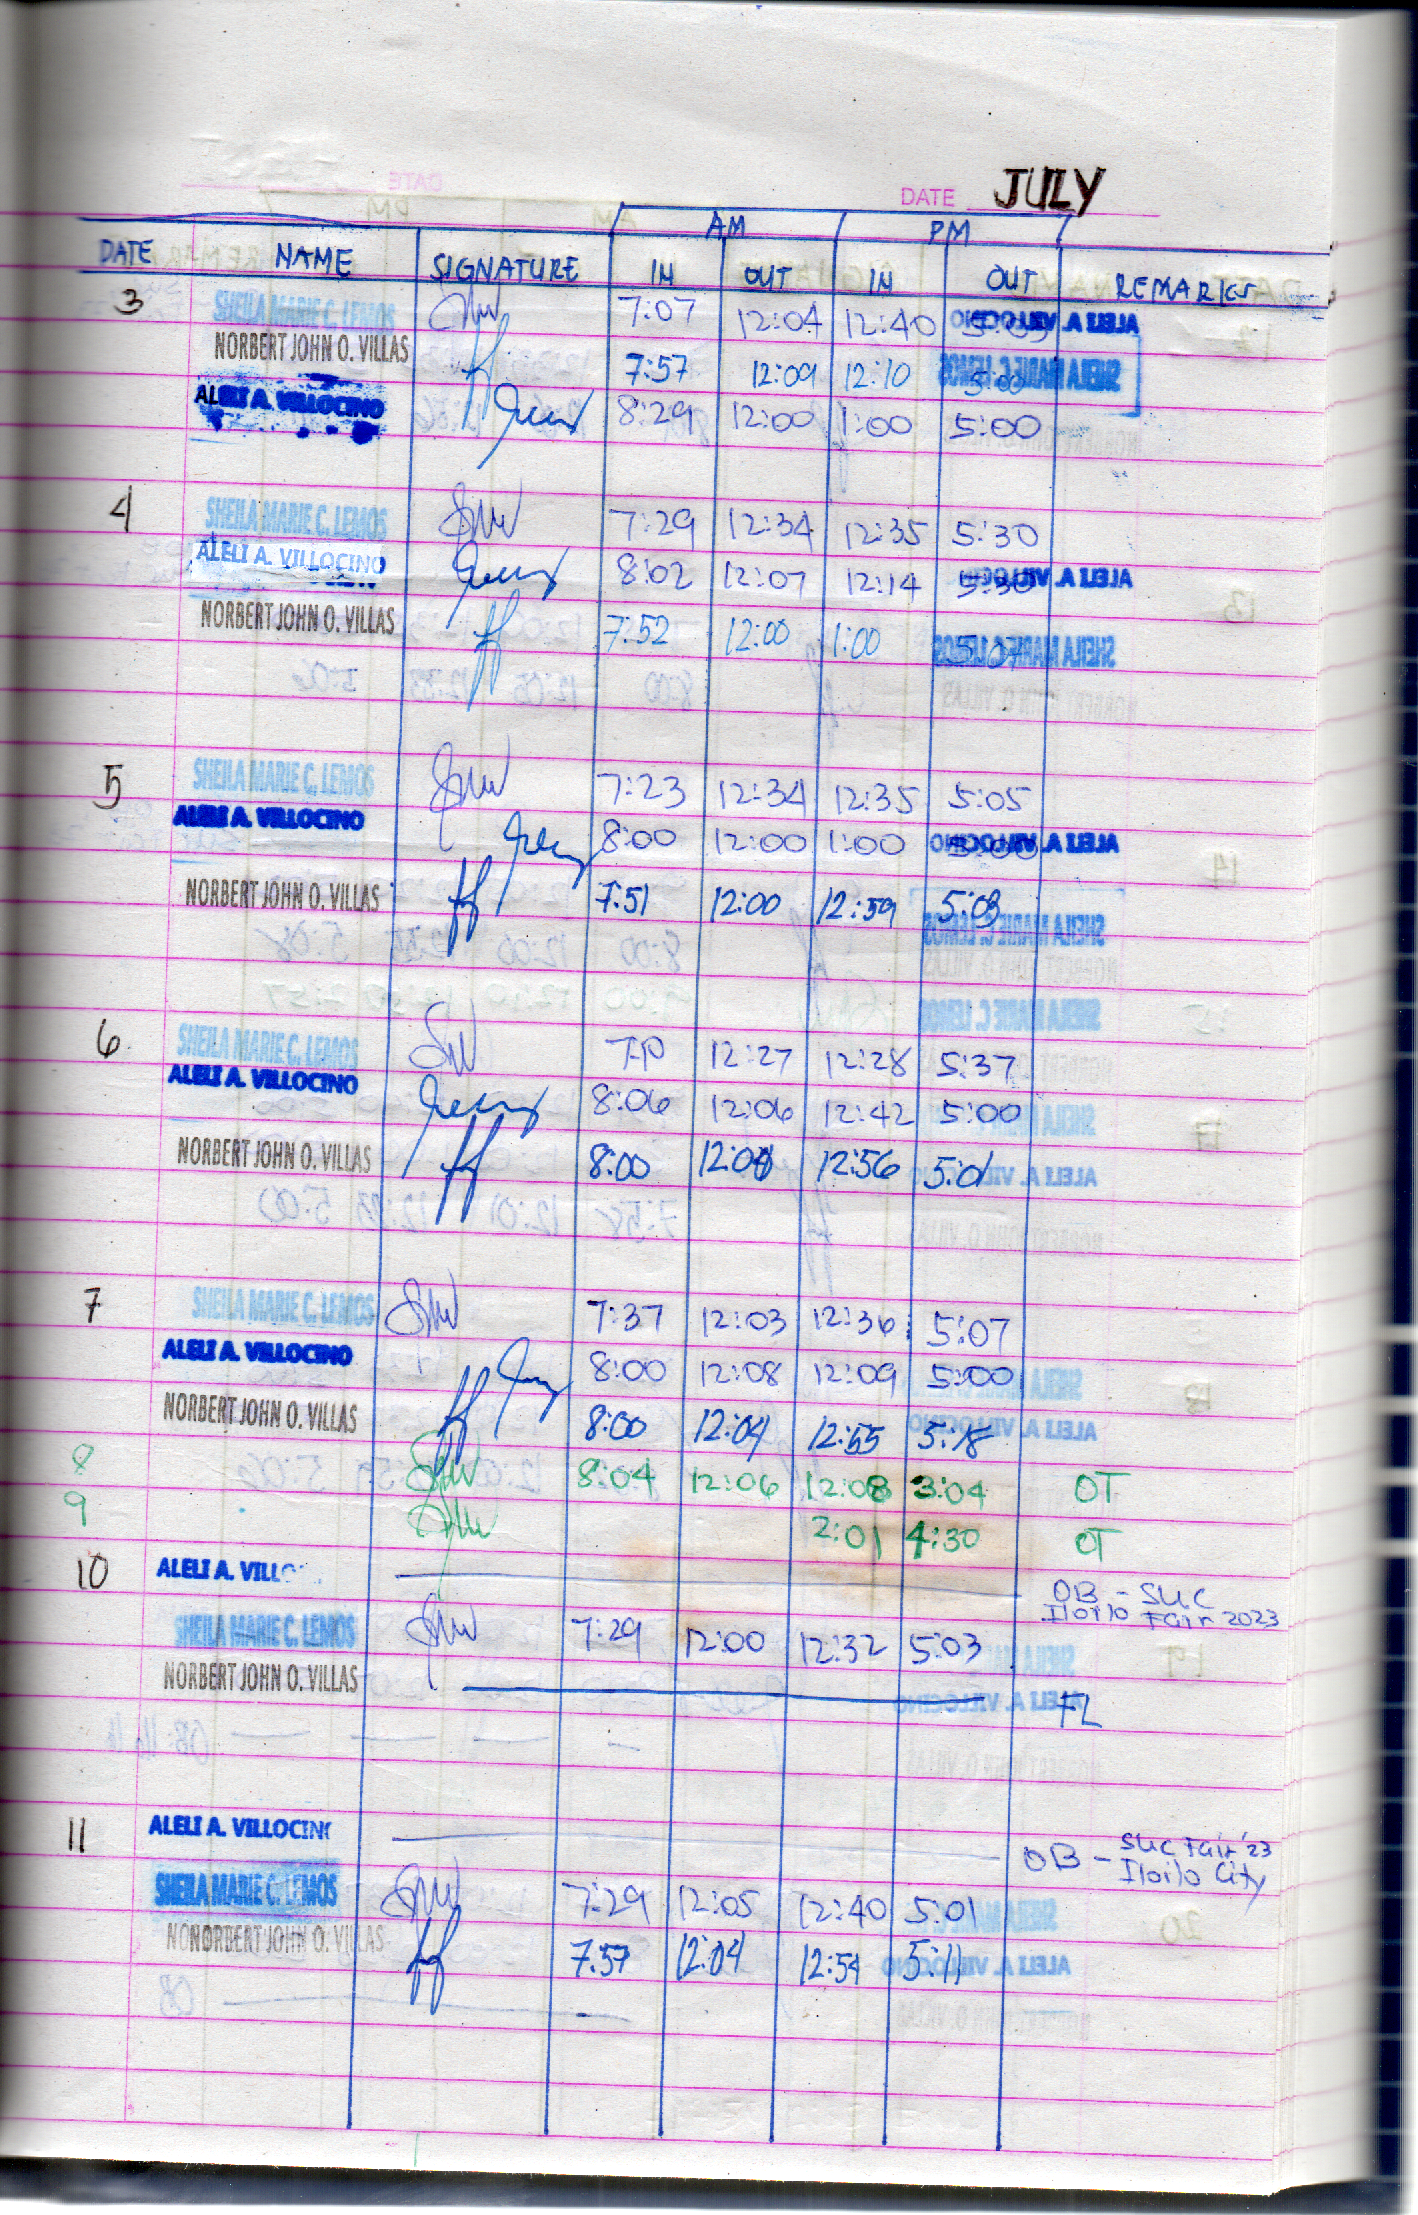 DATE JULY
AM PM
DATE NAME SIGNATURE IN OUT IN OUT REMARKS
3 SHEILA MARIE C. LEMOS 7:07 12:04 12:40
NORBERT JOHN O. VILLAS 7:57 12:09 12:10 5:00
ALELI A. VILLOCINO 8:29 12:00 1:00 5:00
4 SHEILA MARIE C. LEMOS 7:29 12:34 12:35 5:30
ALELI A. VILLOCINO 8:02 12:07 12:14 5:30
NORBERT JOHN O. VILLAS 7:52 12:00 1:00 5:07
5 SHEILA MARIE C. LEMOS 7:23 12:34 12:35 5:05
ALELI A. VILLOCINO 8:00 12:00 1:00 5:00
NORBERT JOHN O. VILLAS 7:51 12:00 12:59 5:03
6 SHEILA MARIE C. LEMOS 12:27 12:28 5:37
ALELI A. VILLOCINO 8:06 12:06 12:42 5:00
NORBERT JOHN O. VILLAS 8:00 12:56 5:01
7 SHEILA MARIE C. LEMOS 7:37 12:03 12:36 5:07
ALELI A. VILLOCINO 8:00 12:08 12:09 5:00
NORBERT JOHN O. VILLAS 8:00 12:04 12:55 5:18
8 8:04 12:06 12:08 3:04 OT
9 2:01 4:30 OT
10 ALELI A. VILLO OB - SUC
Iloilo Fair 2023
SHEILA MARIE C. LEMOS 7:29 12:00 12:32 5:03
NORBERT JOHN O. VILLAS FL
11 ALELI A. VILLOCINO OB - SUC Fair '23
Iloilo City
SHEILA MARIE C. LEMOS 7:29 12:05 12:40 5:01
NONORBERT JOHN O. VILLAS 7:57 12:04 12:54 5:11